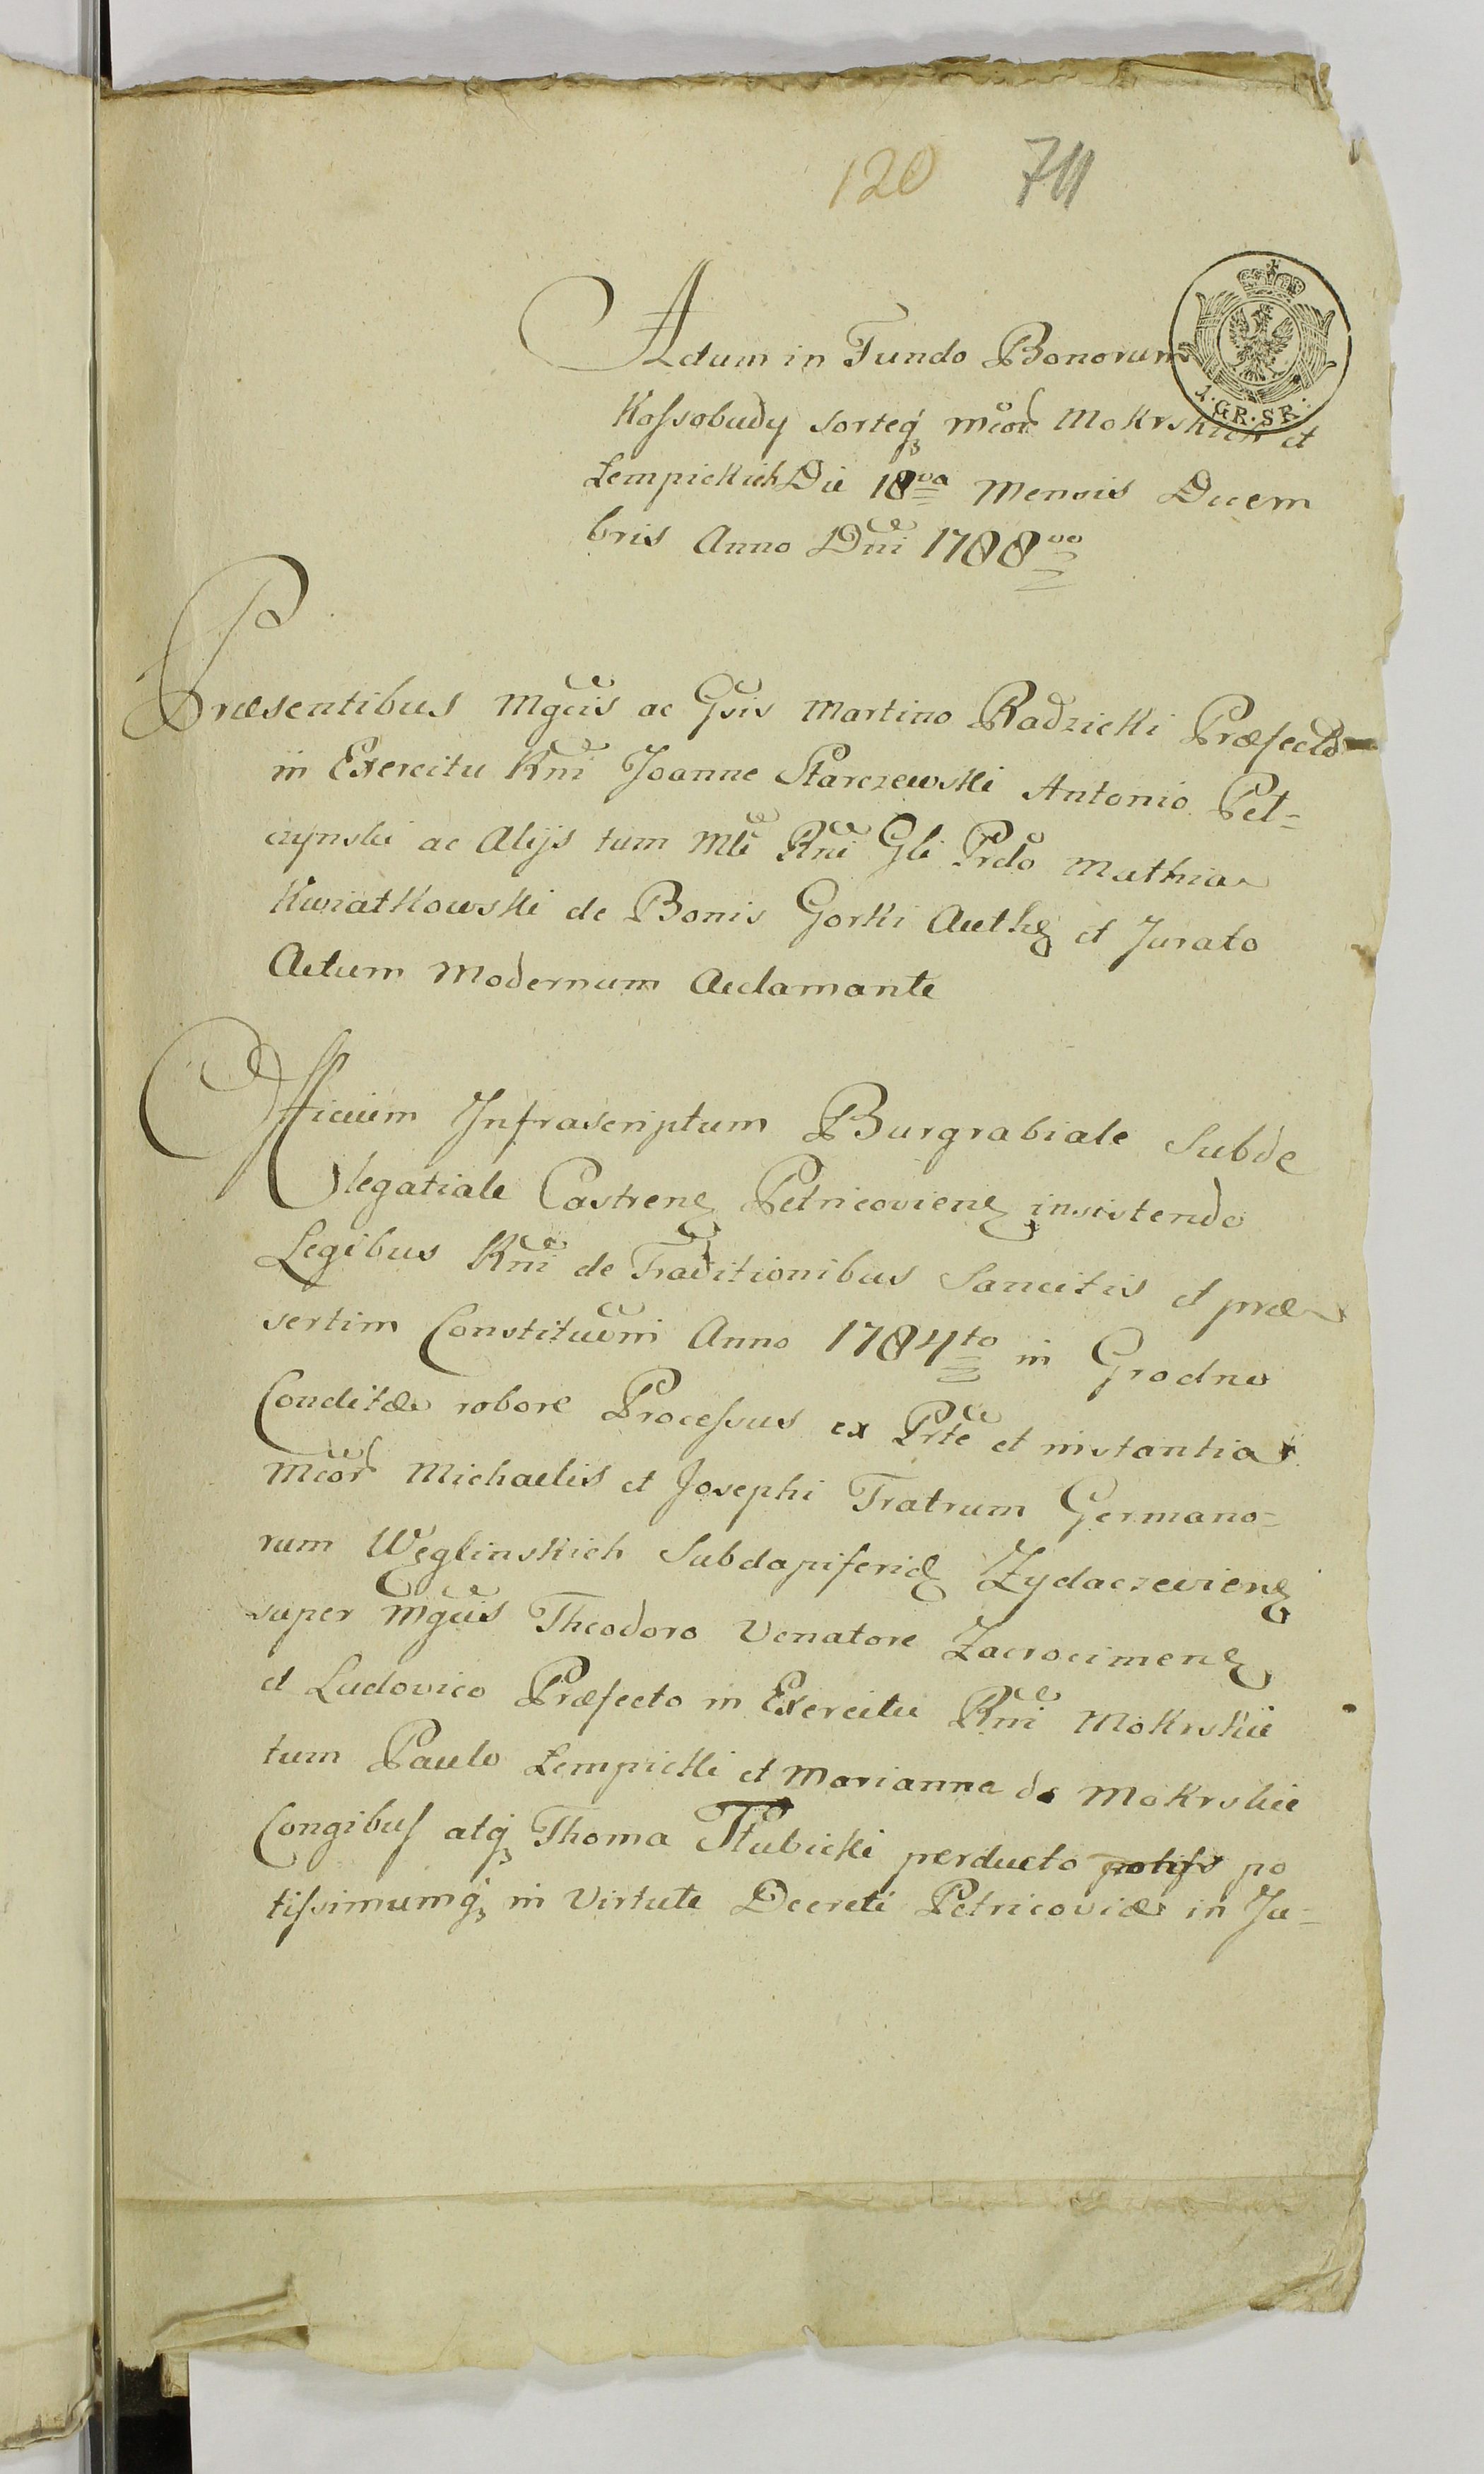 120 711
Actum in Fundo Bonorum
Kossobudy sorteq3 mcor Mokrskich et
Lempickich Die 18va Mensis Decem
bris Anno Dni 1788vo
1.GR.SR.
Præsentibus Mgcis ac Gsis Martino Radzicki Præfecto
in Exercitu Rni Joanne Starczewski Antonio Pel-
czynski ac Alijs tum Mli Rni Gli Prdo Mathia
Kwiatkowski de Bonis Gorki Auth et Jurato
Actum Modernum Acclamante
Officium Infrascriptum Burgrabiale Subde
legatiale Castren Petricovien insistendo
Legibus Rni de Traditionibus Sancitis et præ
sertim Constituni Anno 1784to in Grodno
Conditæ robore Processus ex Prte et instantia
Mcor Michaelis et Josephi Fratrum Germano-
rum Węglinskich Subdapiferid Zydaczevien
super Mgcis Theodoro Venatore Zacrocimen
et Ludovico Præfecto in Exercitu Rni Mokrskie
tum Paulo Lempicki et Marianna de Mokrskie
Congibus atq3 Thoma Słubicki perducto po
tissimumq3 in Virtute Decreti Petricoviæ in Ju-